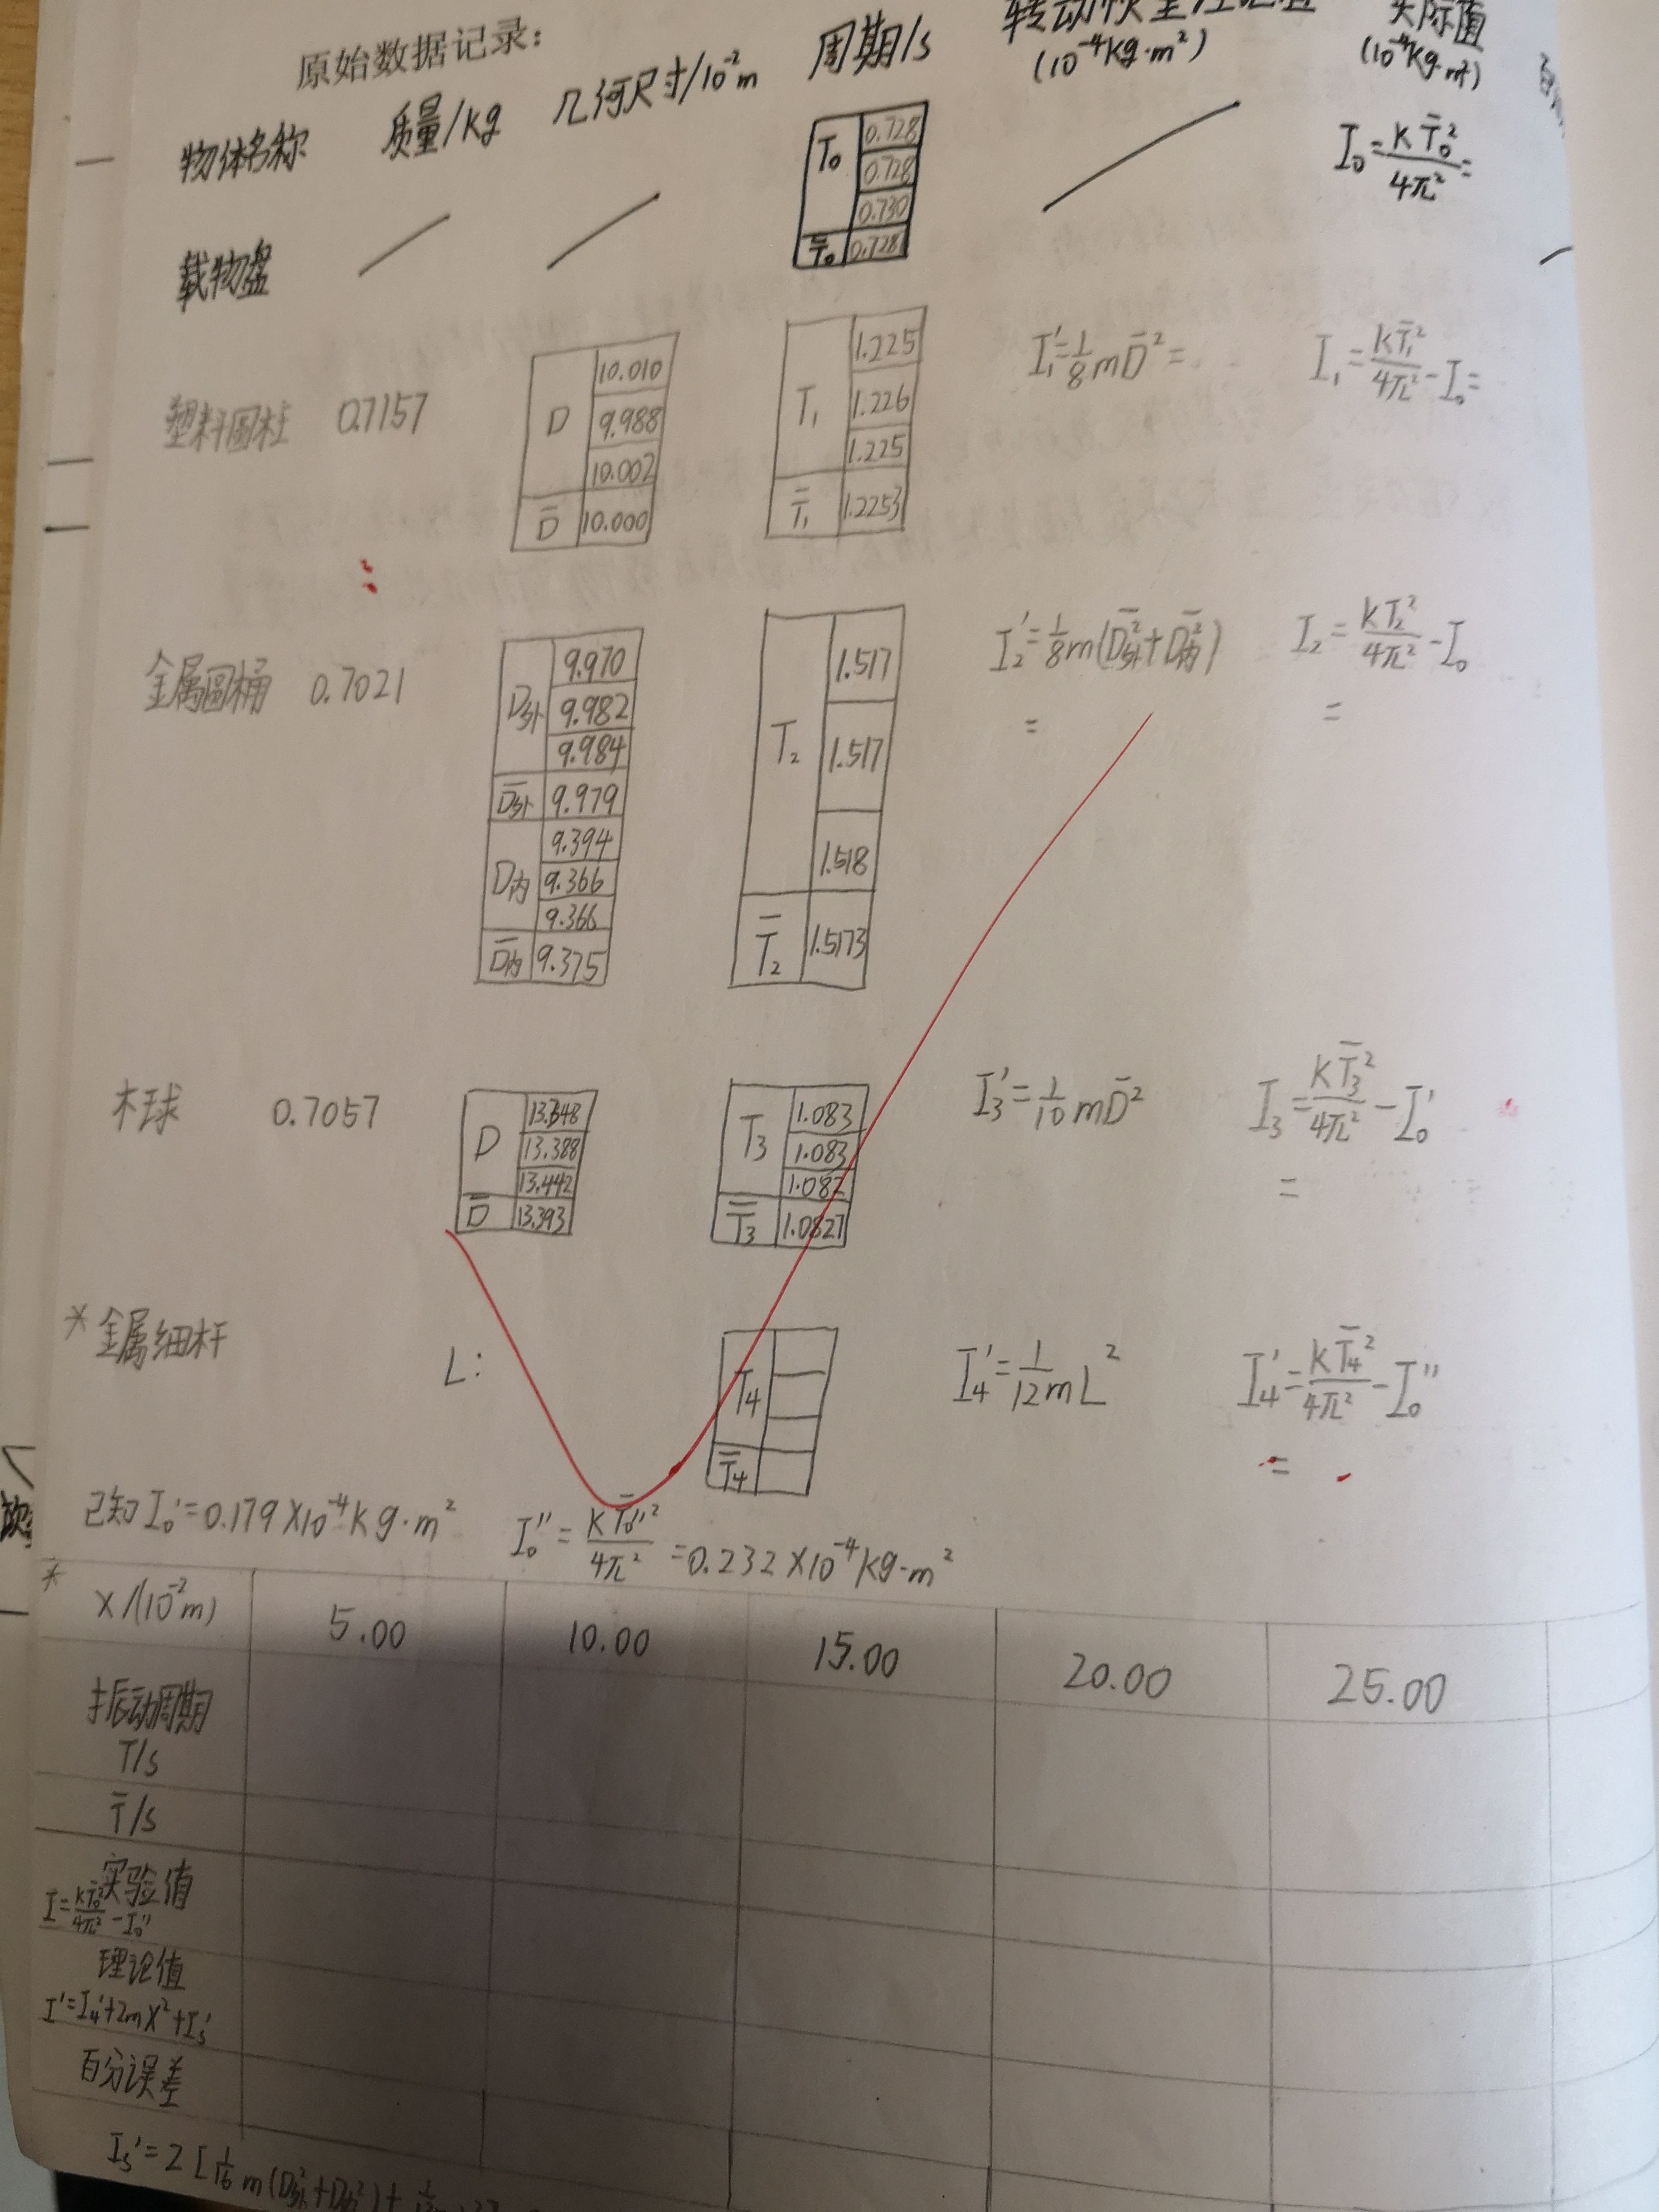 原始数据记录:
物体名称 质量/kg 几何尺寸/10⁻²m 周期/s 转动惯量理论值 (10⁻⁴kg·m²) 实际值 (10⁻⁴kg·m²)
载物盘
T₀ 0.728
0.728
0.730
T̄₀ 0.728
I₀=KT̄₀²/4π²=
塑料圆柱 0.7157
D 10.010
9.988
10.002
D̄ 10.000
T₁ 1.225
1.226
1.225
T̄₁ 1.2253
I₁'=1/8mD̄²=
I₁=KT̄₁²/4π²-I₀=
金属圆桶 0.7021
D外 9.970
9.982
9.984
D̄外 9.979
D内 9.394
9.366
9.366
D̄内 9.375
T₂ 1.517
1.517
1.518
T̄₂ 1.5173
I₂'=1/8m(D̄外²+D̄内²)
=
I₂=KT̄₂²/4π²-I₀
=
木球 0.7057
D 13.348
13.388
13.442
D̄ 13.393
T₃ 1.083
1.083
1.082
T̄₃ 1.0827
I₃'=1/10mD̄²
I₃=KT̄₃²/4π²-I₀'
=
*金属细杆
L:
T₄
T̄₄
I₄'=1/12mL²
I₄'=KT̄₄²/4π²-I₀''
=
已知I₀'=0.179×10⁻⁴kg·m² I₀''=KT̄₀''²/4π²=0.232×10⁻⁴kg·m²
* X/(10⁻²m) 5.00 10.00 15.00 20.00 25.00
振动周期
T/s
T̄/s
实验值
I=KT̄₀²/4π²-I₀''
理论值
I'=I₄'+2mX²+I₅'
百分误差
I₅'=2[1/16m(D外²+D内²)+